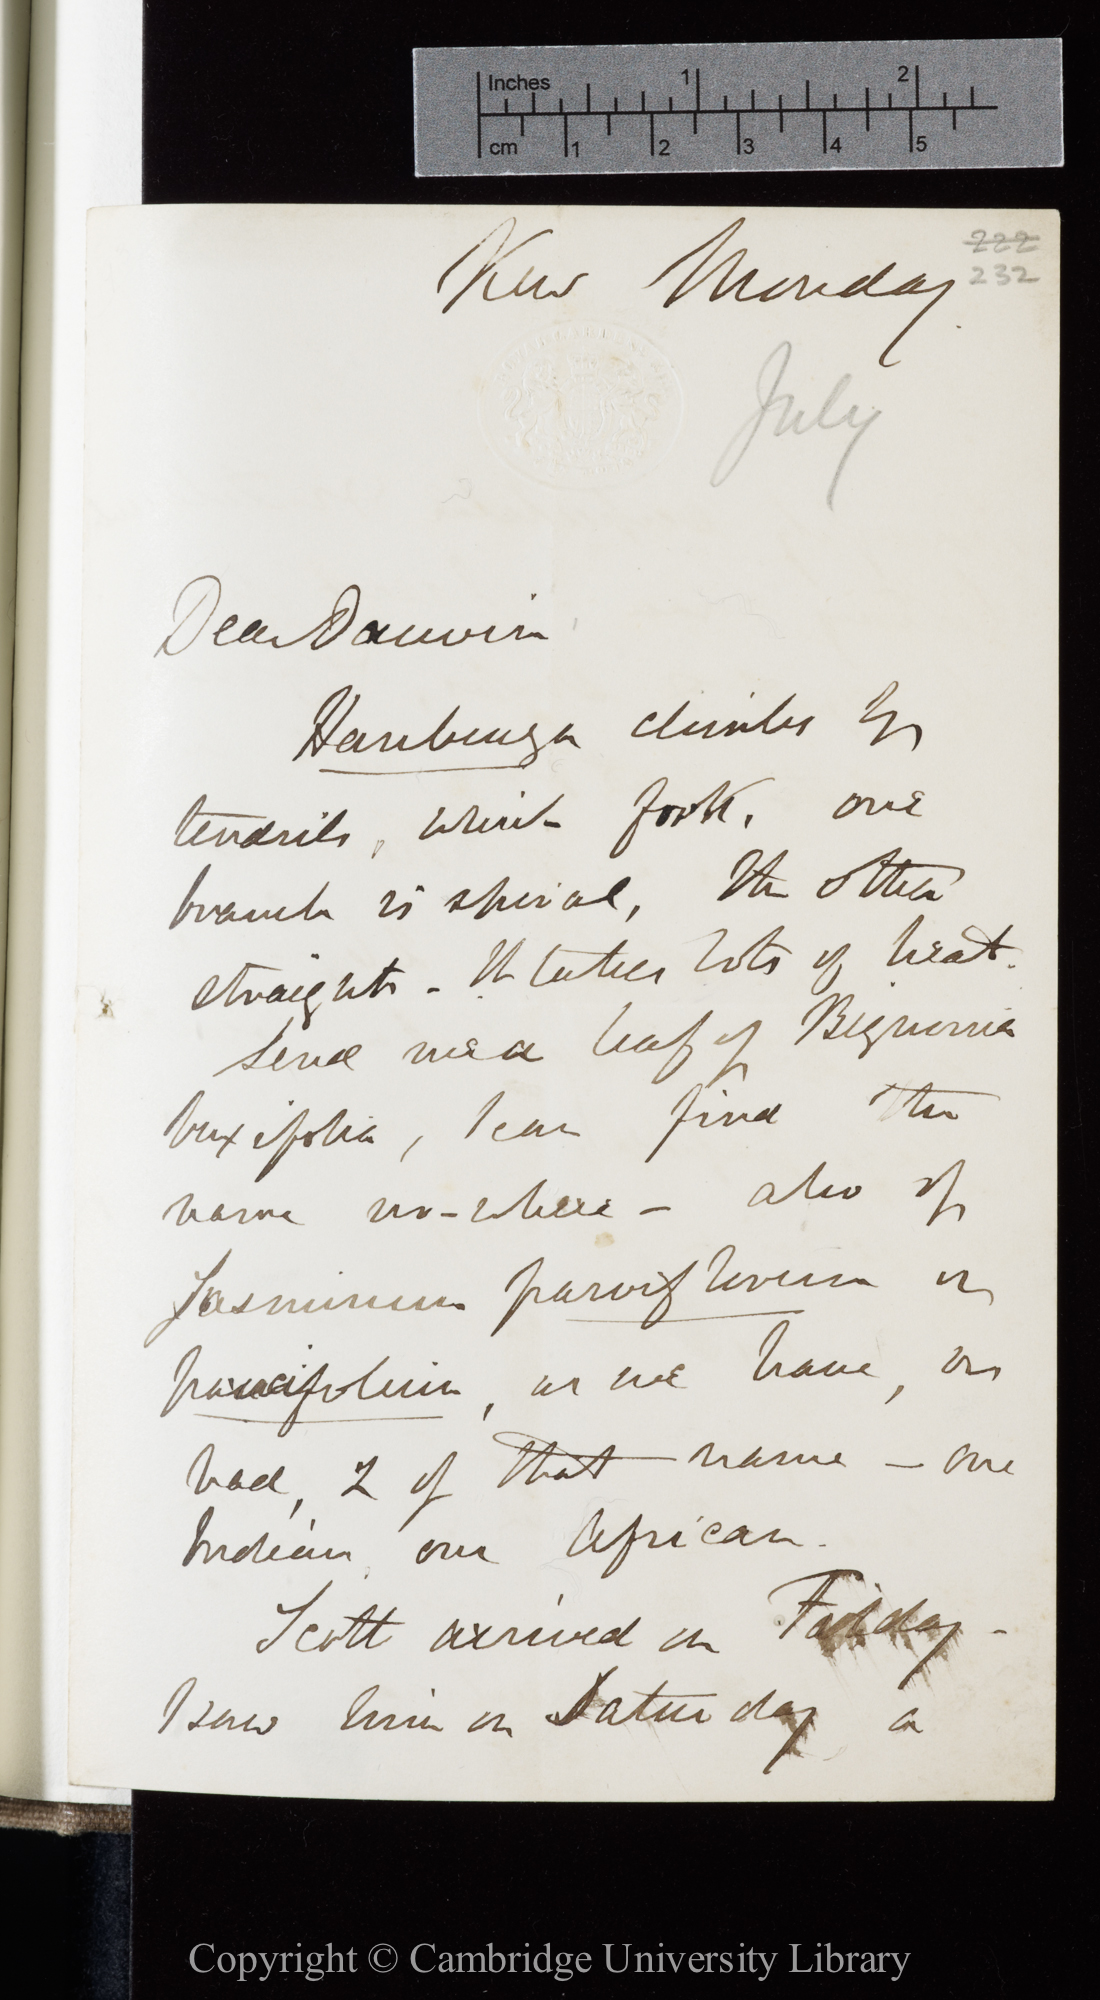 Inches 1 2
cm 1 2 3 4 5
222
232
Kew Monday
July
Dear Darwin
Hanburya climbs by
tendrils, which fork, one
branch is spiral, the other
straight. It takes lots of heat.
Send me a leaf of Bignonia
buxifolia, I can find the
name no-where — also of
Jasminum parviflorum or
paucifolium, as we have, or
had, 2 of that name — one
Indian, one African.
Scott arrived on Friday —
I saw him on Saturday, a
Copyright © Cambridge University Library